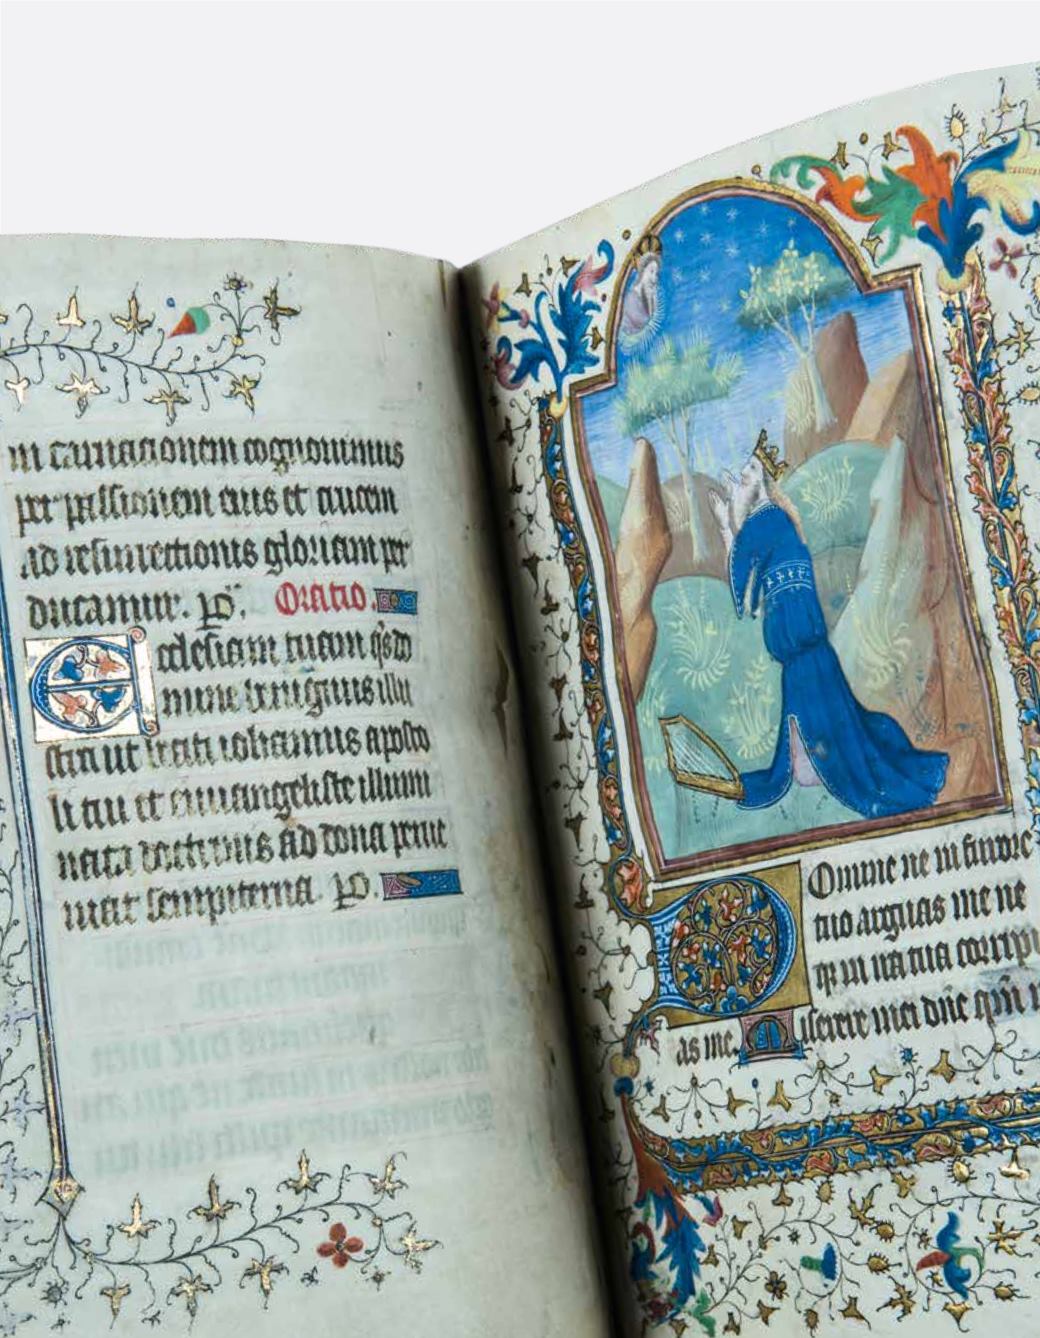 in carnationem cognouimus
per passionem eius et crucem
ad resurrectionis gloriam per
ducamur. p̄. Oratio.
Ecclesiam tuam q̄s do
mine benignus illu
stra ut beati iohannis aposto
li tui et euuangeliste illumi
nata doctrinis ad dona peruе
niat sempiterna. p̄.
Domine ne in furore
tuo arguas me ne
q̄ in ira tua corripi
as me. Miserere mei dn̄e qm̄